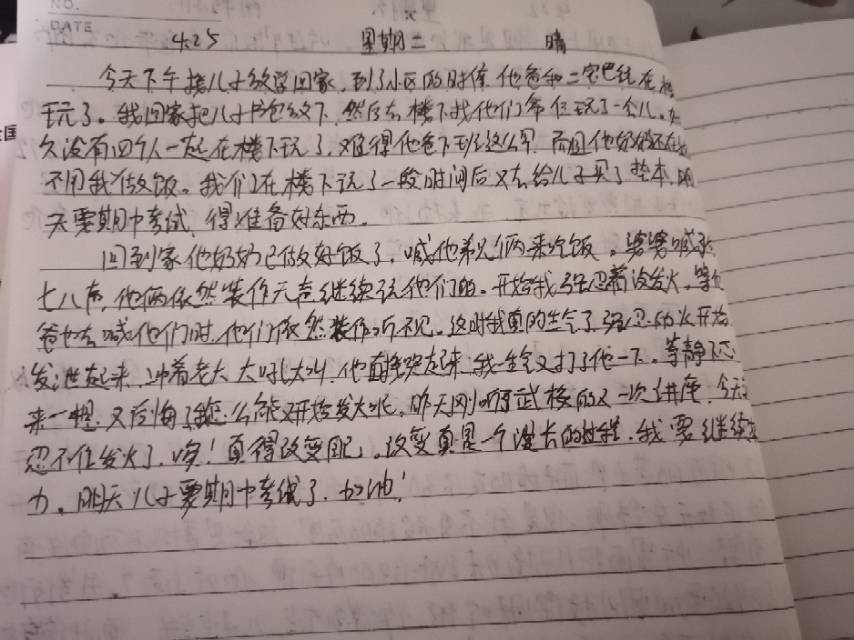 NO.
DATE
4.25 星期二 晴
今天下午接儿子放学回家,到了小区的时候他爸和二宝已经在楼
玩了。我回家把儿子书包放下,然后去楼下找他们爷仨玩了一会儿。好
久没有四个人一起在楼下玩了,难得他爸下班这么早,而且他奶奶还在
不用我做饭。我们在楼下玩了一段时间后又去给儿子买了垫本,明
天要期中考试,得准备好东西。
回到家他奶奶已做好饭了,喊他弟兄俩来吃饭。婆婆喊了
七八声,他俩依然装作无声继续玩他们的。开始我强忍着没发火,等他
爸也去喊他们时,他们依然装作听不见。这时我真的生气了,强忍的火开始
发泄起来,冲着老大大吼大叫,他直接哭起来,我一生气又打了他一下。等静下心
来一想,又后悔了我怎么能又开始发火呢,昨天刚听了武校的又一次讲座,今天
忍不住发火了,哎!真得改变呢,改变真是一个漫长的过程,我要继续
力。明天儿子要期中考试了,加油!